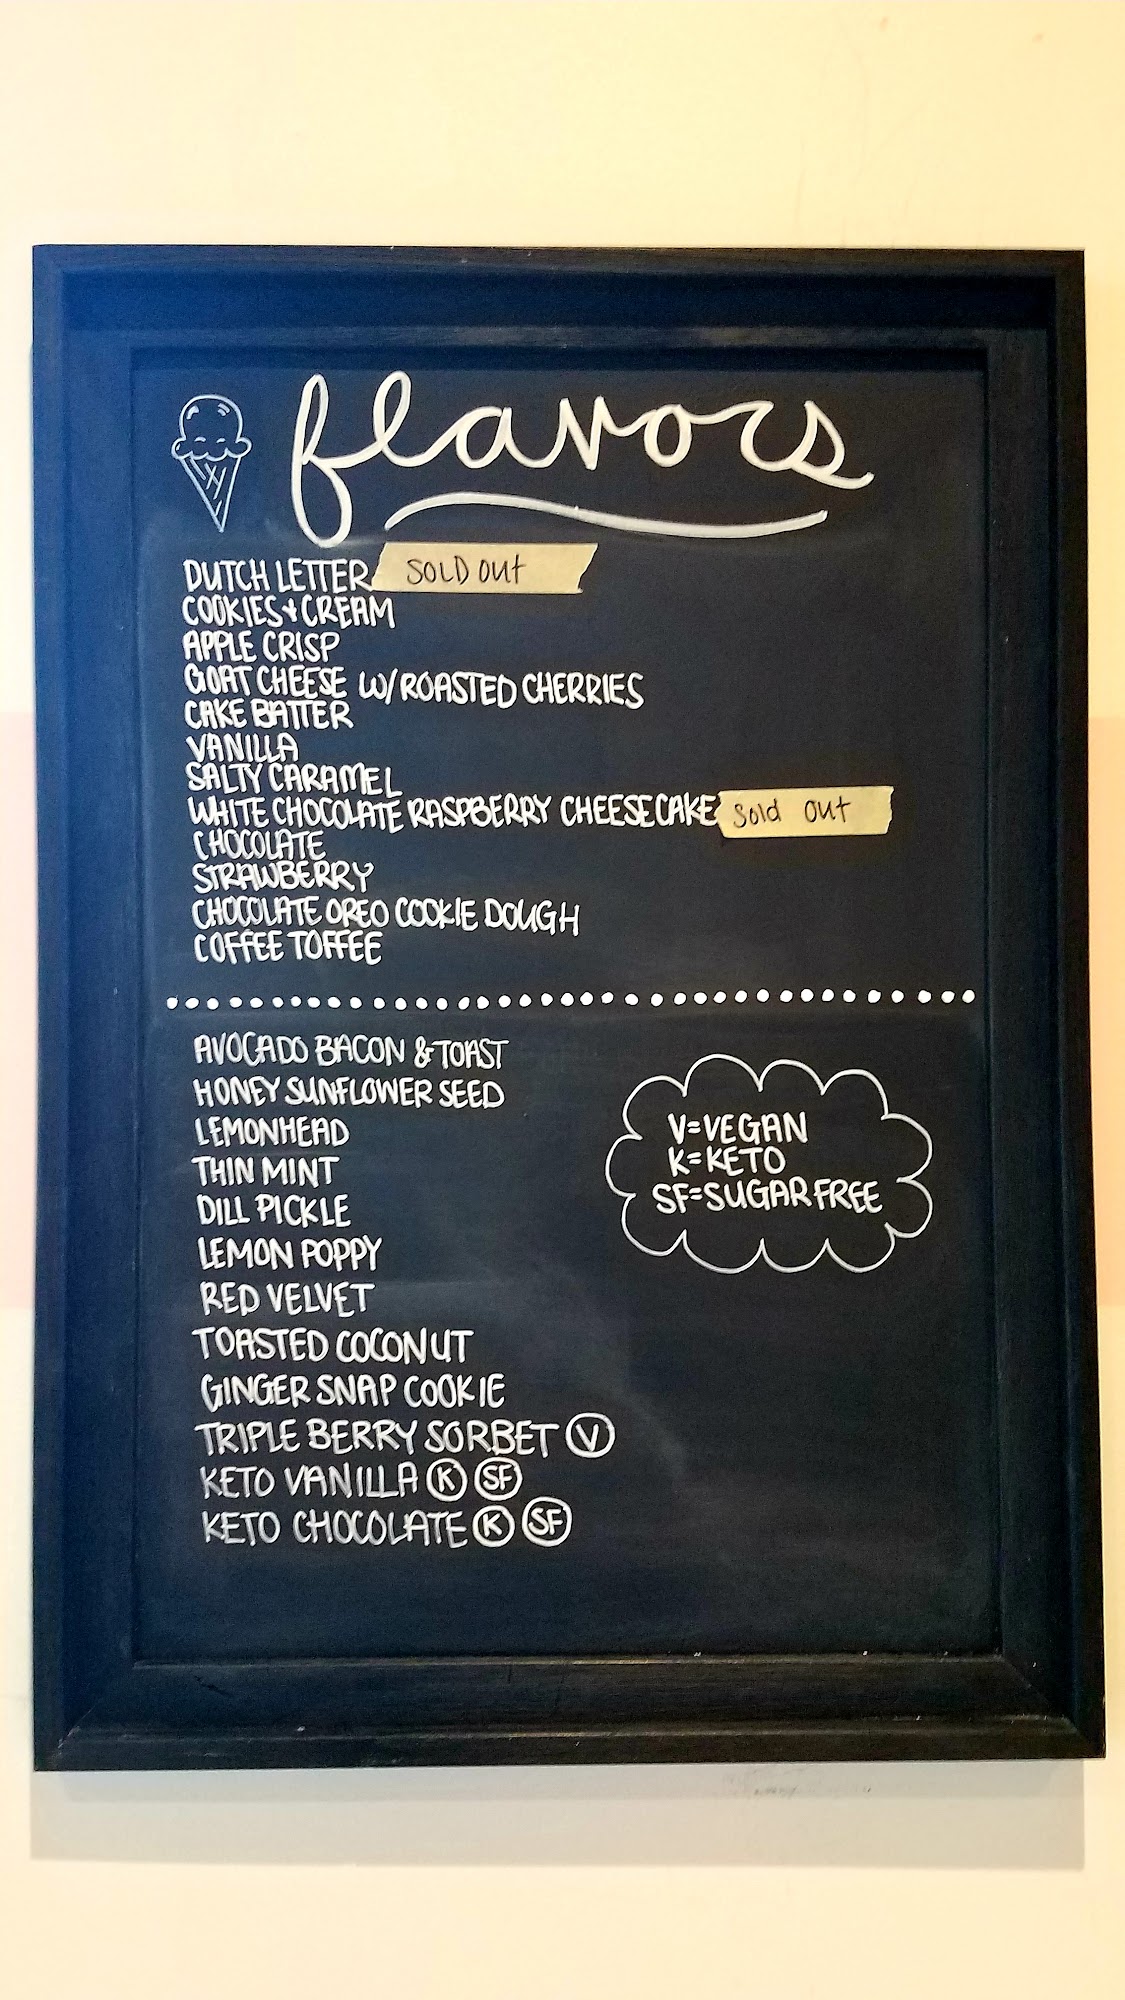 flavors
DUTCH LETTER SOLD OUT
COOKIES & CREAM
APPLE CRISP
GOAT CHEESE W/ ROASTED CHERRIES
CAKE BATTER
VANILLA
SALTY CARAMEL
WHITE CHOCOLATE RASPBERRY CHEESECAKE Sold OUT
CHOCOLATE
STRAWBERRY
CHOCOLATE OREO COOKIE DOUGH
COFFEE TOFFEE
AVOCADO BACON & TOAST
HONEY SUNFLOWER SEED
LEMONHEAD
THIN MINT
DILL PICKLE
LEMON POPPY
RED VELVET
TOASTED COCONUT
GINGER SNAP COOKIE
TRIPLE BERRY SORBET V
KETO VANILLA K SF
KETO CHOCOLATE K SF
V=VEGAN
K=KETO
SF=SUGAR FREE